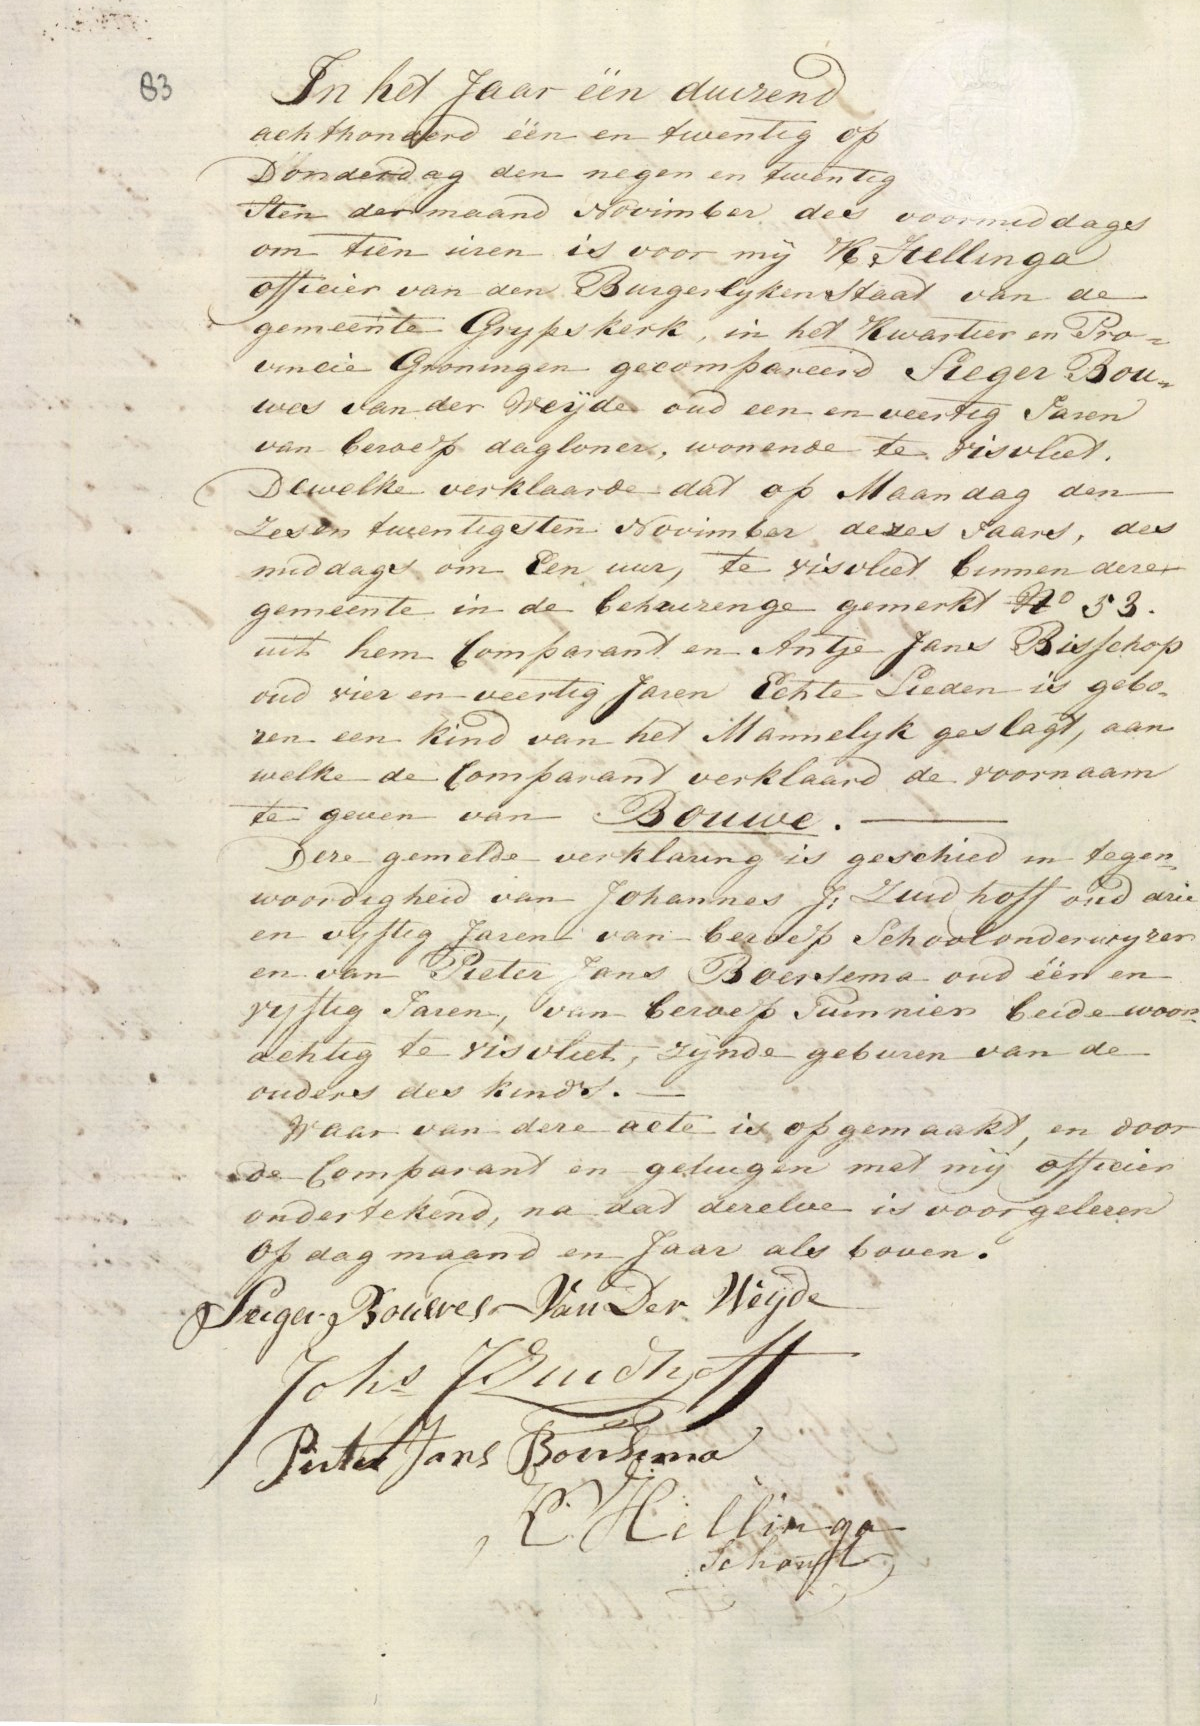 83
In het Jaar één duizend
achthonderd één en twentig op
Donderdag den negen en twentig
sten der maand Novimber des voormiddages
om tien uren is voor mij K Hellinga
officier van den Burgerlyken Staat van de
gemeente Grypskerk, in het Kwartier en Pro-
vincie Groningen gecompareerd Sieger Bou-
wes van der Weijde oud een en veertig Jaren
van beroep dagloner, wonende te Visvliet.
Dewelke verklaarde dat op Maandag den
zesen twentigsten Novimber dezes Jaars, des
middags om Een uur, te Visvliet binnen deze
gemeente in de behuizenge gemerkt No 53.
uit hem Comparant en Antje Jans Bisschop
oud vier en veertig Jaren Echte Lieden is gebo-
ren een kind van het Mannelyk geslagt, aan
welke de Comparant verklaard de voornaam
te geven van Bouwe.
Deze gemelde verklaring is geschied in tegen-
woordigheid van Johannes J: Zuidhoff oud drie
en vyftig Jaren van beroep Schoolonderwyzer
en van Pieter Jans Boersema oud één en
vyftig Jaren, van beroep Tuinnier beide woon-
achtig te Visvliet, zijnde geburen van de
ouders des kinds.
Waar van deze acte is opgemaakt, en door
de Comparant en getuigen met mij officier
ondertekend, na dat dezelve is voorgelezen
Op dag maand en Jaar als boven.
Sieger Bouwes Van Der Weijde
Johs J Zuidhoff
Pieter Jans Boersema
K Hellinga
Schout